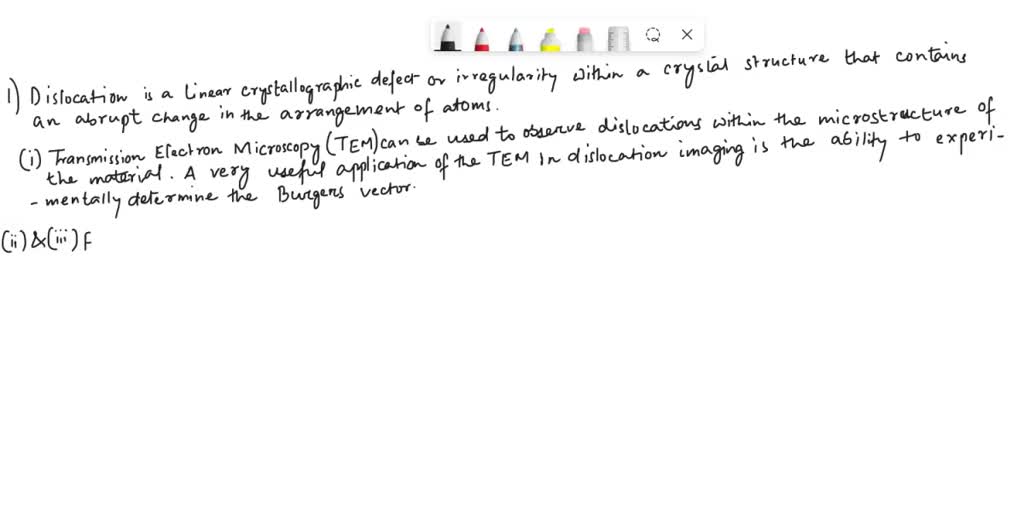 1) Dislocation is a linear crystallographic defect or irregularity within a crystal structure that contains
an abrupt change in the arrangement of atoms.
(i) Transmission Electron Microscopy (TEM) can be used to observe dislocations within the microstructure of
the material. A very useful application of the TEM in dislocation imaging is the ability to experi-
-mentally determine the Burgers vector.
(ii) & (iii) F